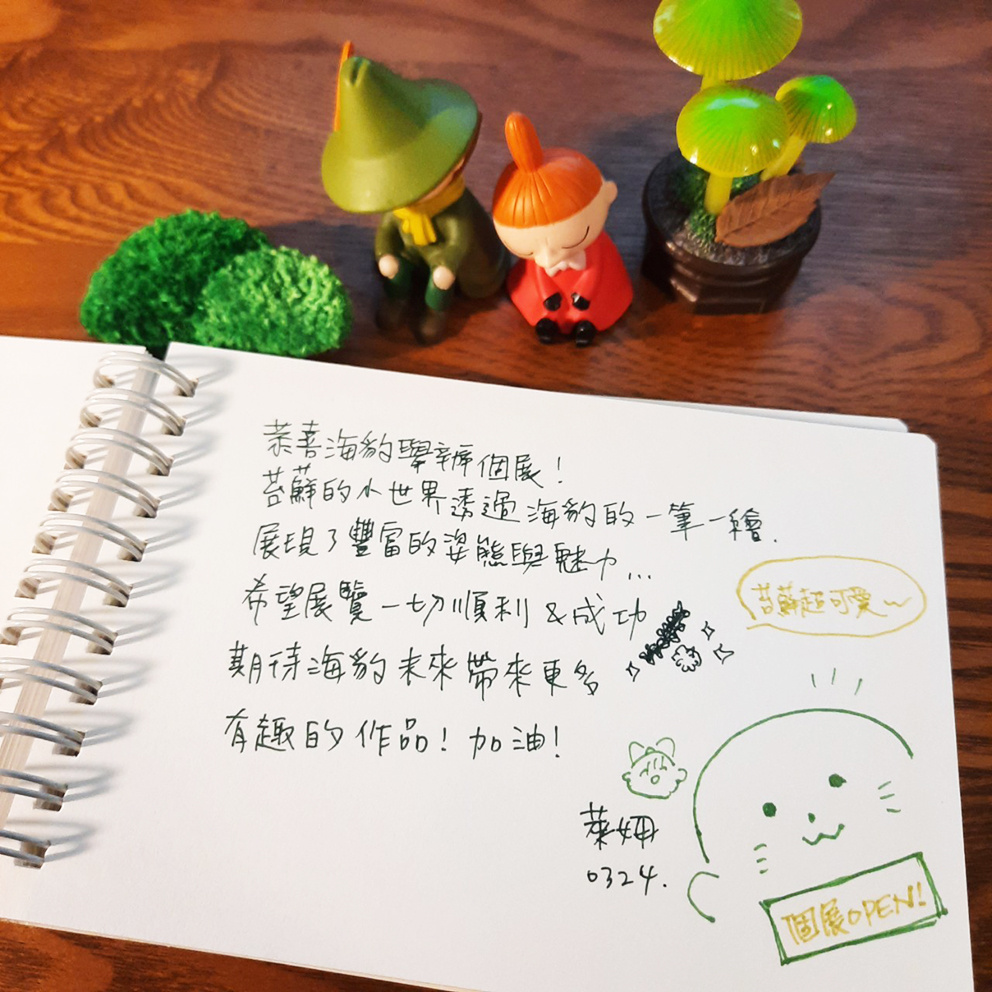 恭喜海豹舉辦個展！
苔蘚的小世界透過海豹的一筆一繪.
展現了豐富的姿態與魅力...
希望展覽一切順利&成功
期待海豹未來帶來更多
有趣的作品！加油！
苔蘚超可愛~
萊妞
0324.
個展OPEN!